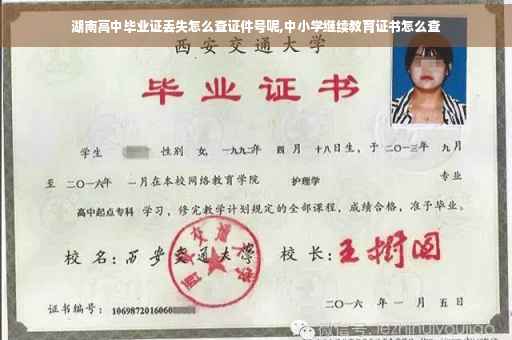 湖南高中毕业证丢失怎么查证件号呢,中小学继续教育证书怎么查
西安交通大学
毕业证书
学生 性别 女, 一九九二年 四月 十八日生, 于 二〇一三年 九月
至 二〇一六年 一月在本校网络教育学院 护理学 专业
高中起点专科 学习, 修完教学计划规定的全部课程, 成绩合格, 准予毕业。
校名: 西安交通大学 校长: 王树国
西安交通大学
证书编号: 1069872016060
二〇一六年 一月 五日
微信号: jezhihuiyoujiao